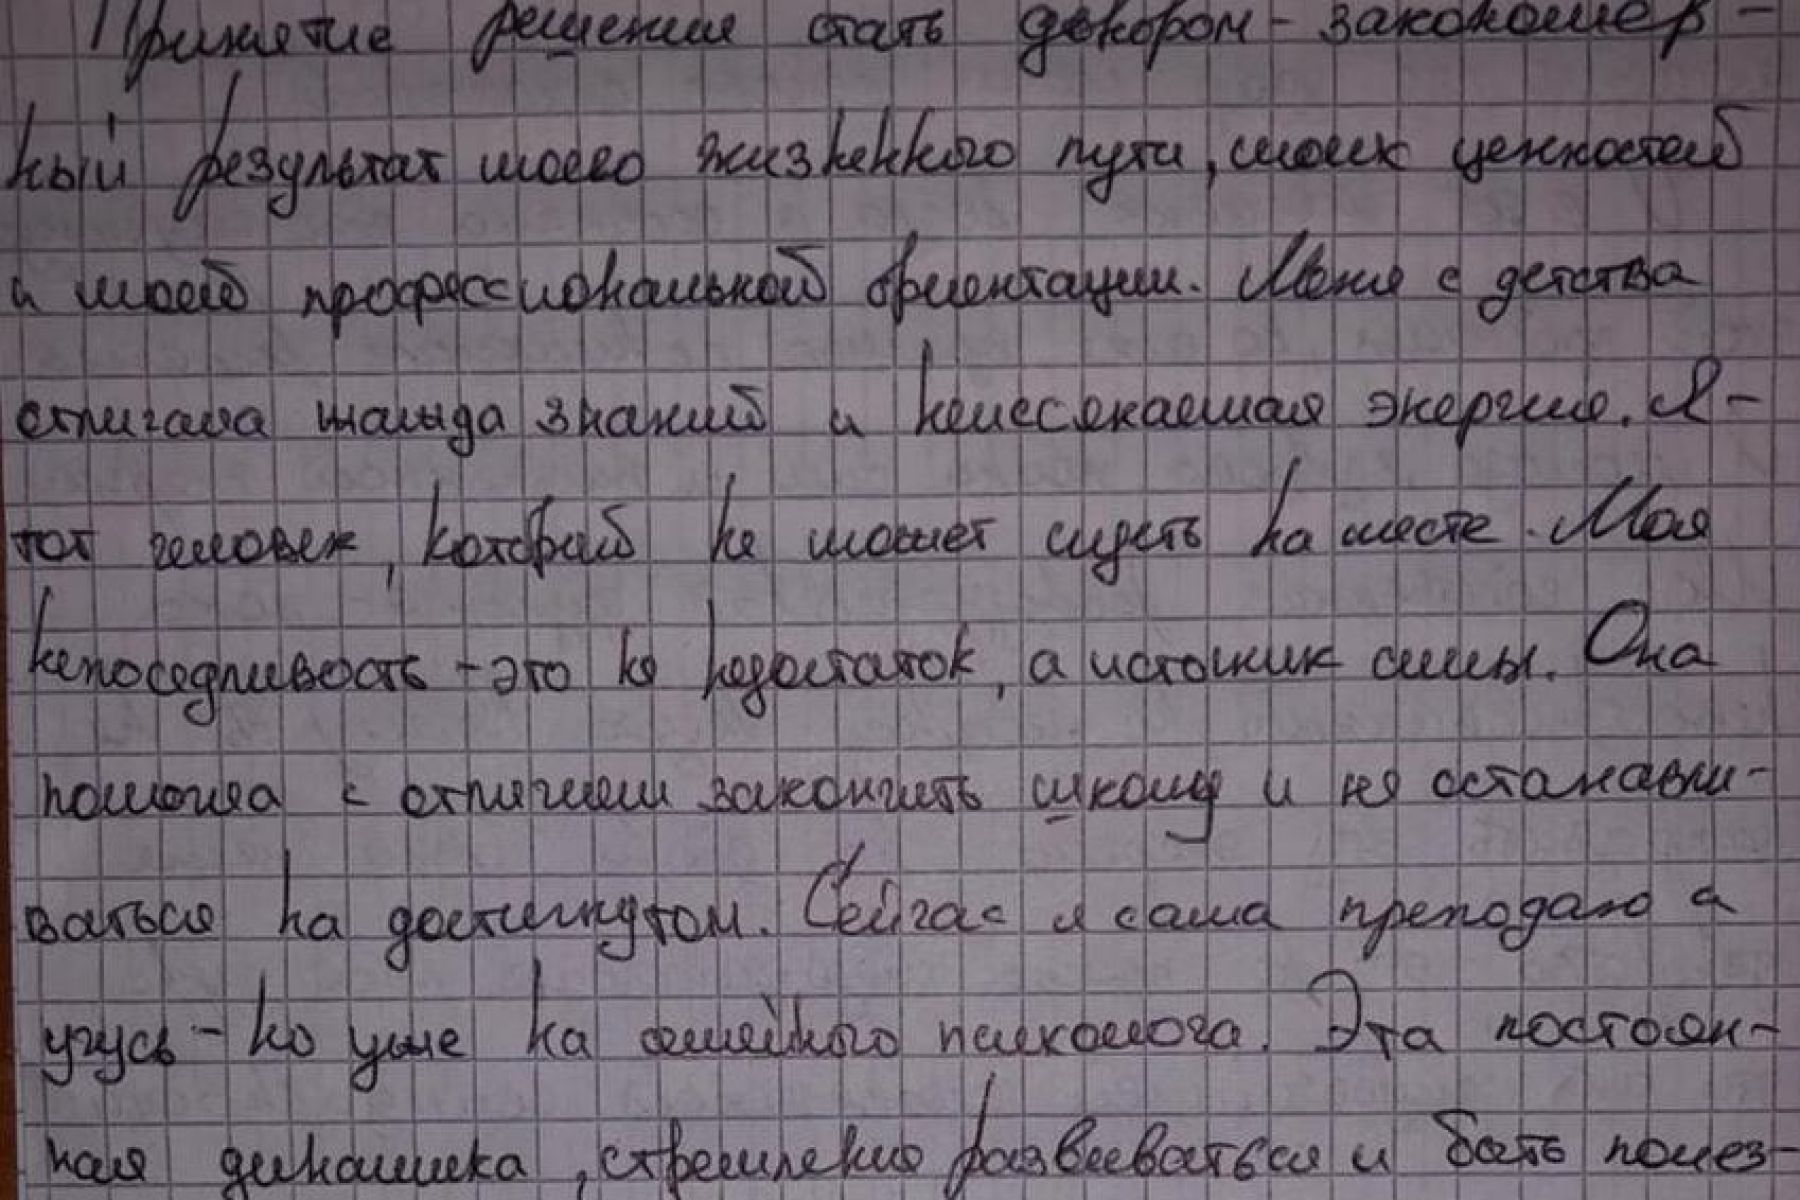 Принятие решения стать донором - закономер-
ный результат моего жизненного пути, моих ценностей
и моей профессиональной ориентации. Меня с детства
отличала жажда знаний и неиссякаемая энергия. Я -
тот человек, который не может сидеть на месте. Моя
непоседливость - это не недостаток, а источник силы. Она
помогла с отличием закончить школу и не останавли-
ваться на достигнутом. Сейчас я сама преподаю и
учусь - но уже на семейного психолога. Эта постоян-
ная динамика, стремление развиваться и быть полез-